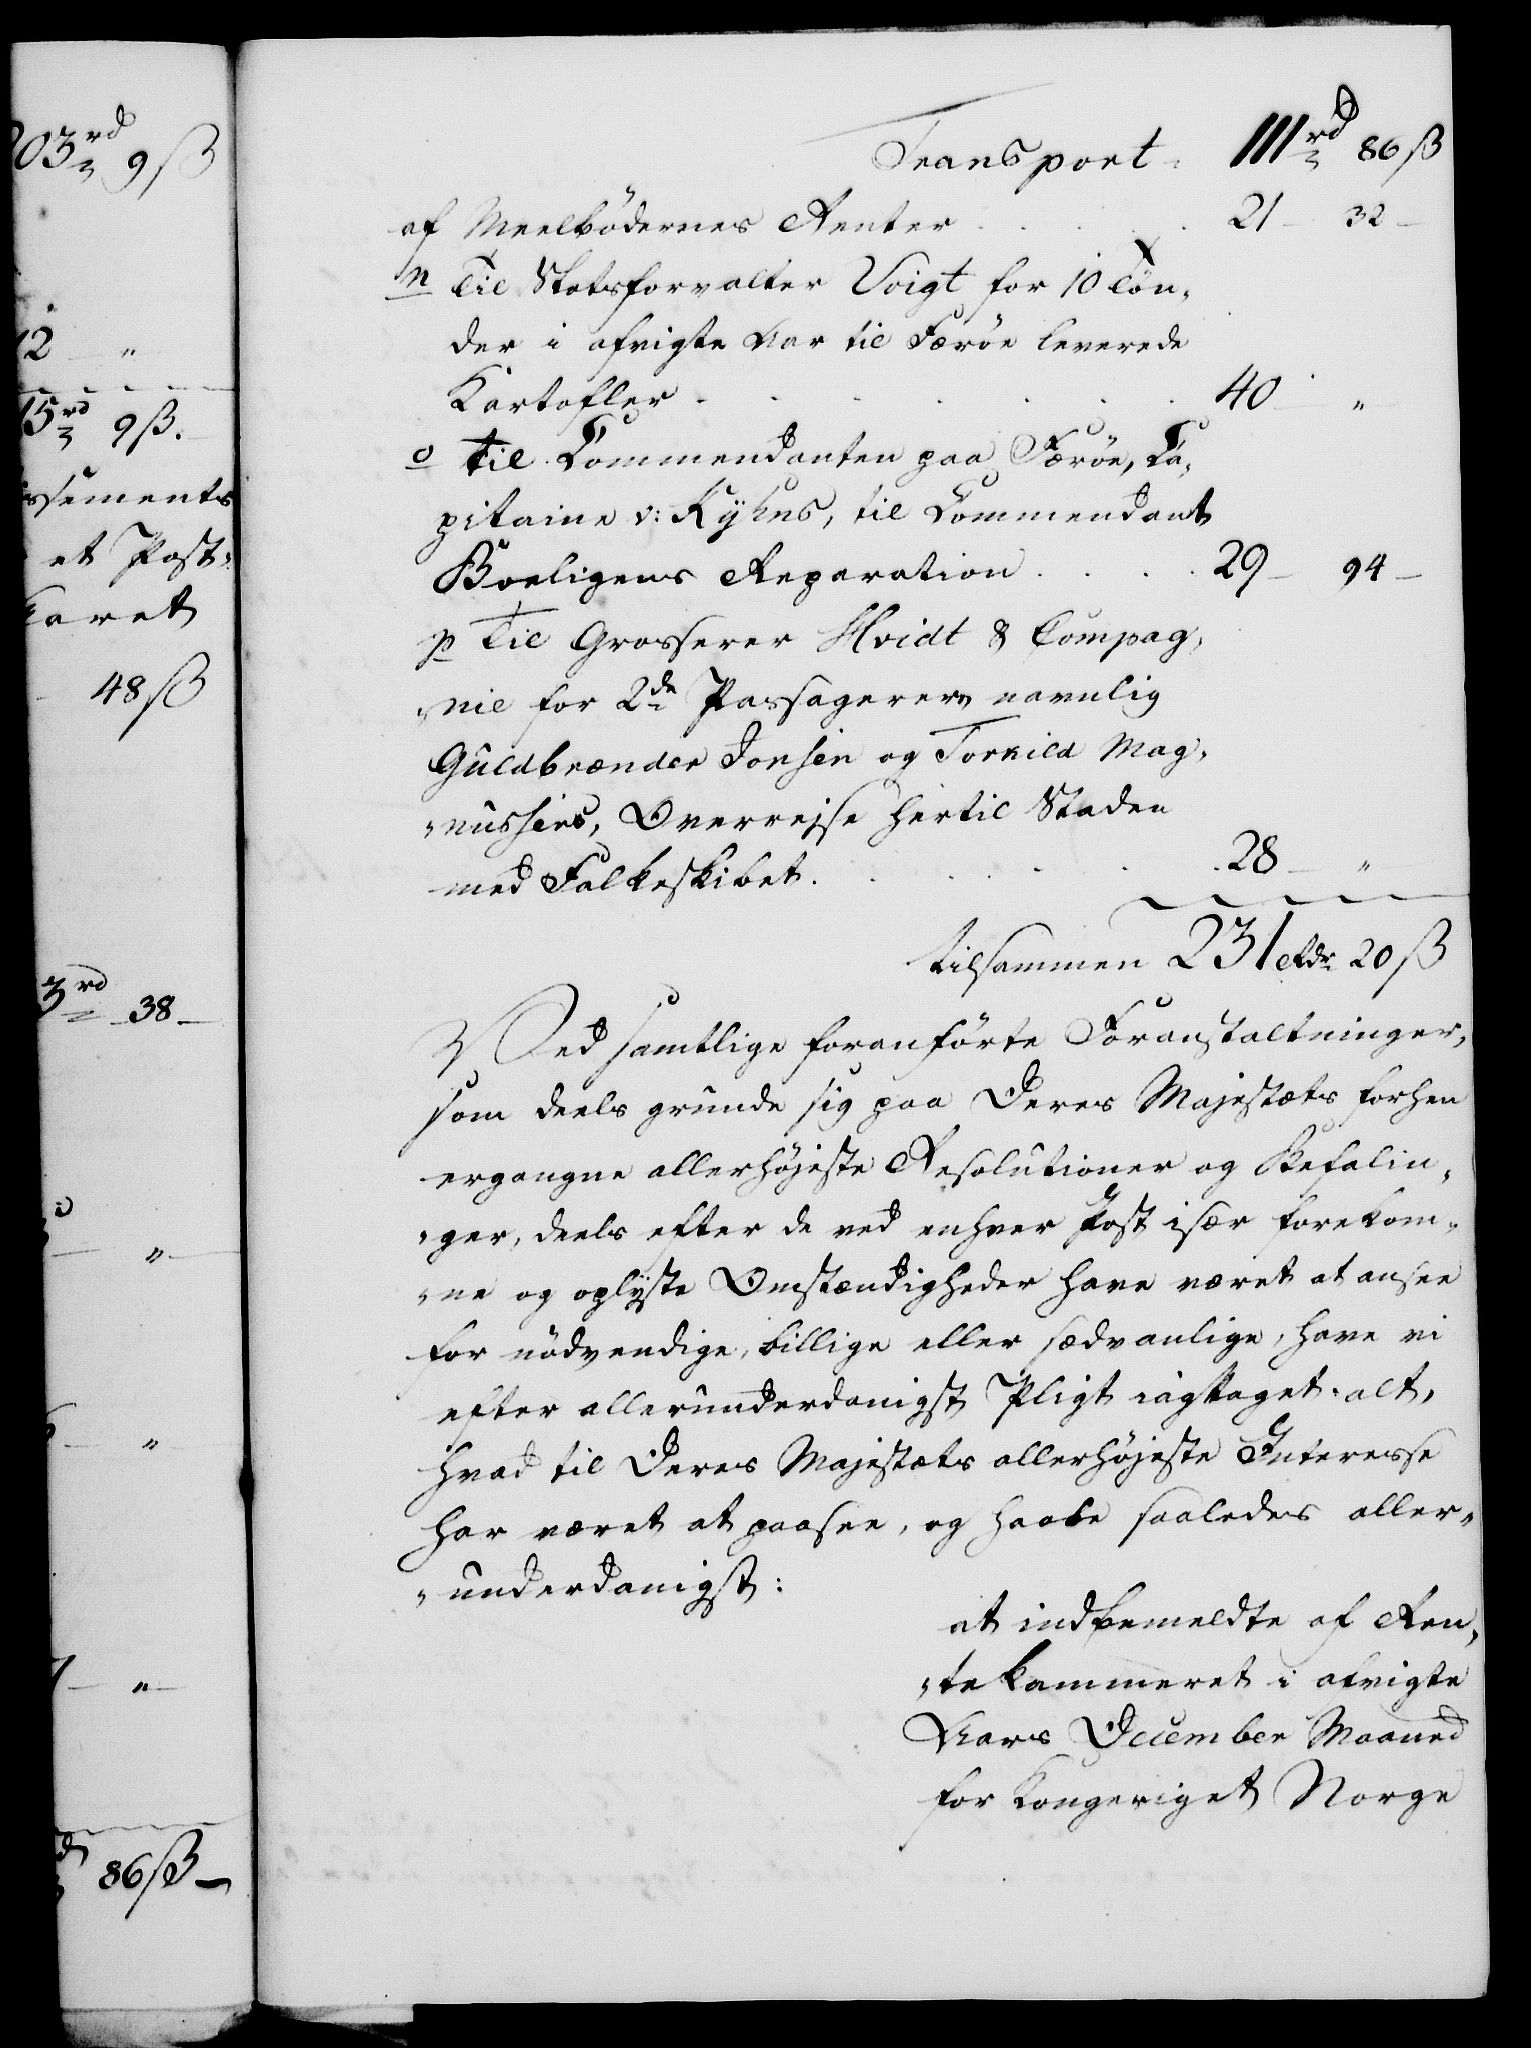 203rd 9ß
12 "
15rd 9ß.
ssements
et Post-
Karet
48ß
3rd 38
"
"
"
86ß
Transport 111rd 86ß
af Meelbödernes Renter 21 - 32 -
n Til Slotsforvalter Voigt for 10 Tön-
der i afvigte Aar til Færöe leverede
Kartofler 40 "
o til Commendanten paa Færöe, Ca-
pitaine v: Ryhus, til Commendant
Boeligens Reparation 29 - 94 -
p Til Grosserer Hvidt & Compag-
nie for 2de Passagerers navnlig
Guldbrander Jonsen og Torkild Mag-
nussens, Overrejse hertil Staden
med Falkeskibet. 28 - "
tilsammen 231 Rdr 20ß
Ved samtlige foranförte Foranstaltninger,
som deels grunde sig paa Deres Majestæts forhen
ergangne allerhöjeste Resolutioner og Befalin-
ger, deels efter de ved enhver Post især forekom-
ne og oplyste Omstændigheder have været at ansee
for nödvendige, billige eller sædvanlige, have vi
efter allerunderdanigst Pligt iagttaget alt,
hvad til Deres Majestæts allerhöjeste Interesse
har været at paasee, og haabe saaledes aller-
underdanigst:
at indbemeldte af Ren-
tekammeret i afvigte
Aars December Maaned
for Kongeriget Norge